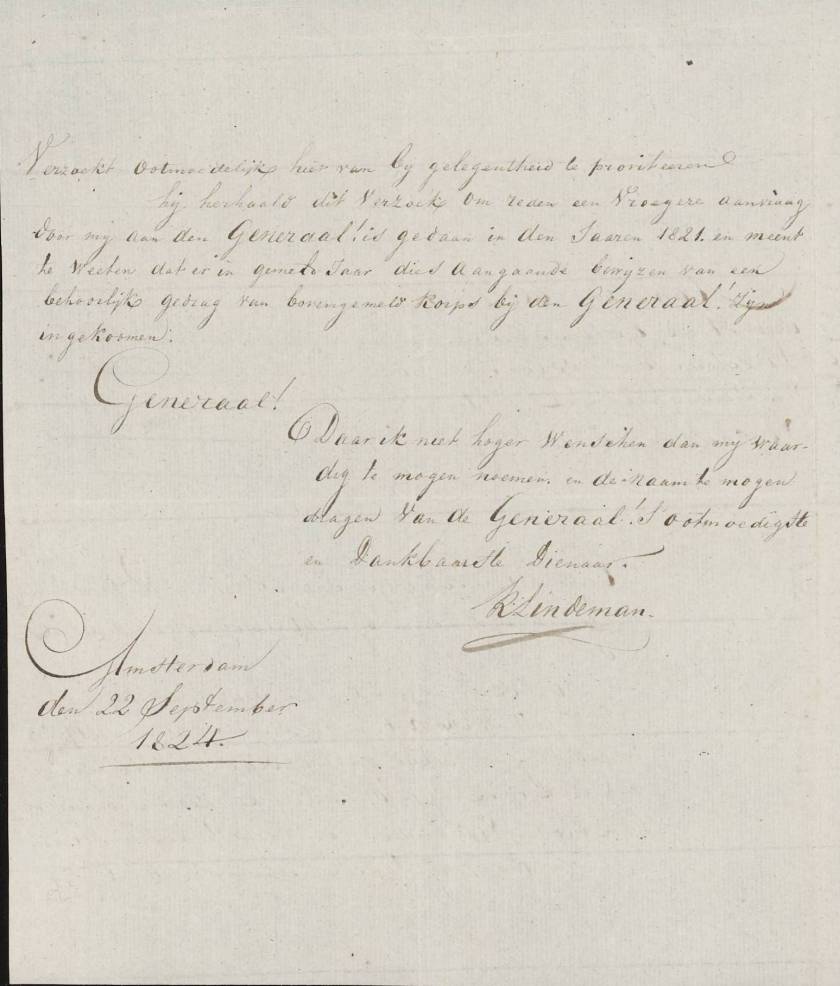 Verzoekt ootmoedelijk hier van by gelegentheid te proriteeren
hij herhaald dit Verzoek om reden een Vroegere aanvraag
door mij aan den Generaal! is gedaan in den Jaaren 1821. en meent
te Weeten dat er in gemelde Jaar dies aangaande bewyzen van een
behoorlijk gedrag van bovengemeld Korps bij den Generaal! zyn
ingekoomen.
Generaal!
Daar ik niet hoger Wenschen dan mij Waar-
dig te mogen noemen. en de Naam te mogen
dragen Van de Generaal! S ootmoedigste
en Dankbaarste Dienaar.
R: Lindeman.
Amsterdam
den 22 September
1824.